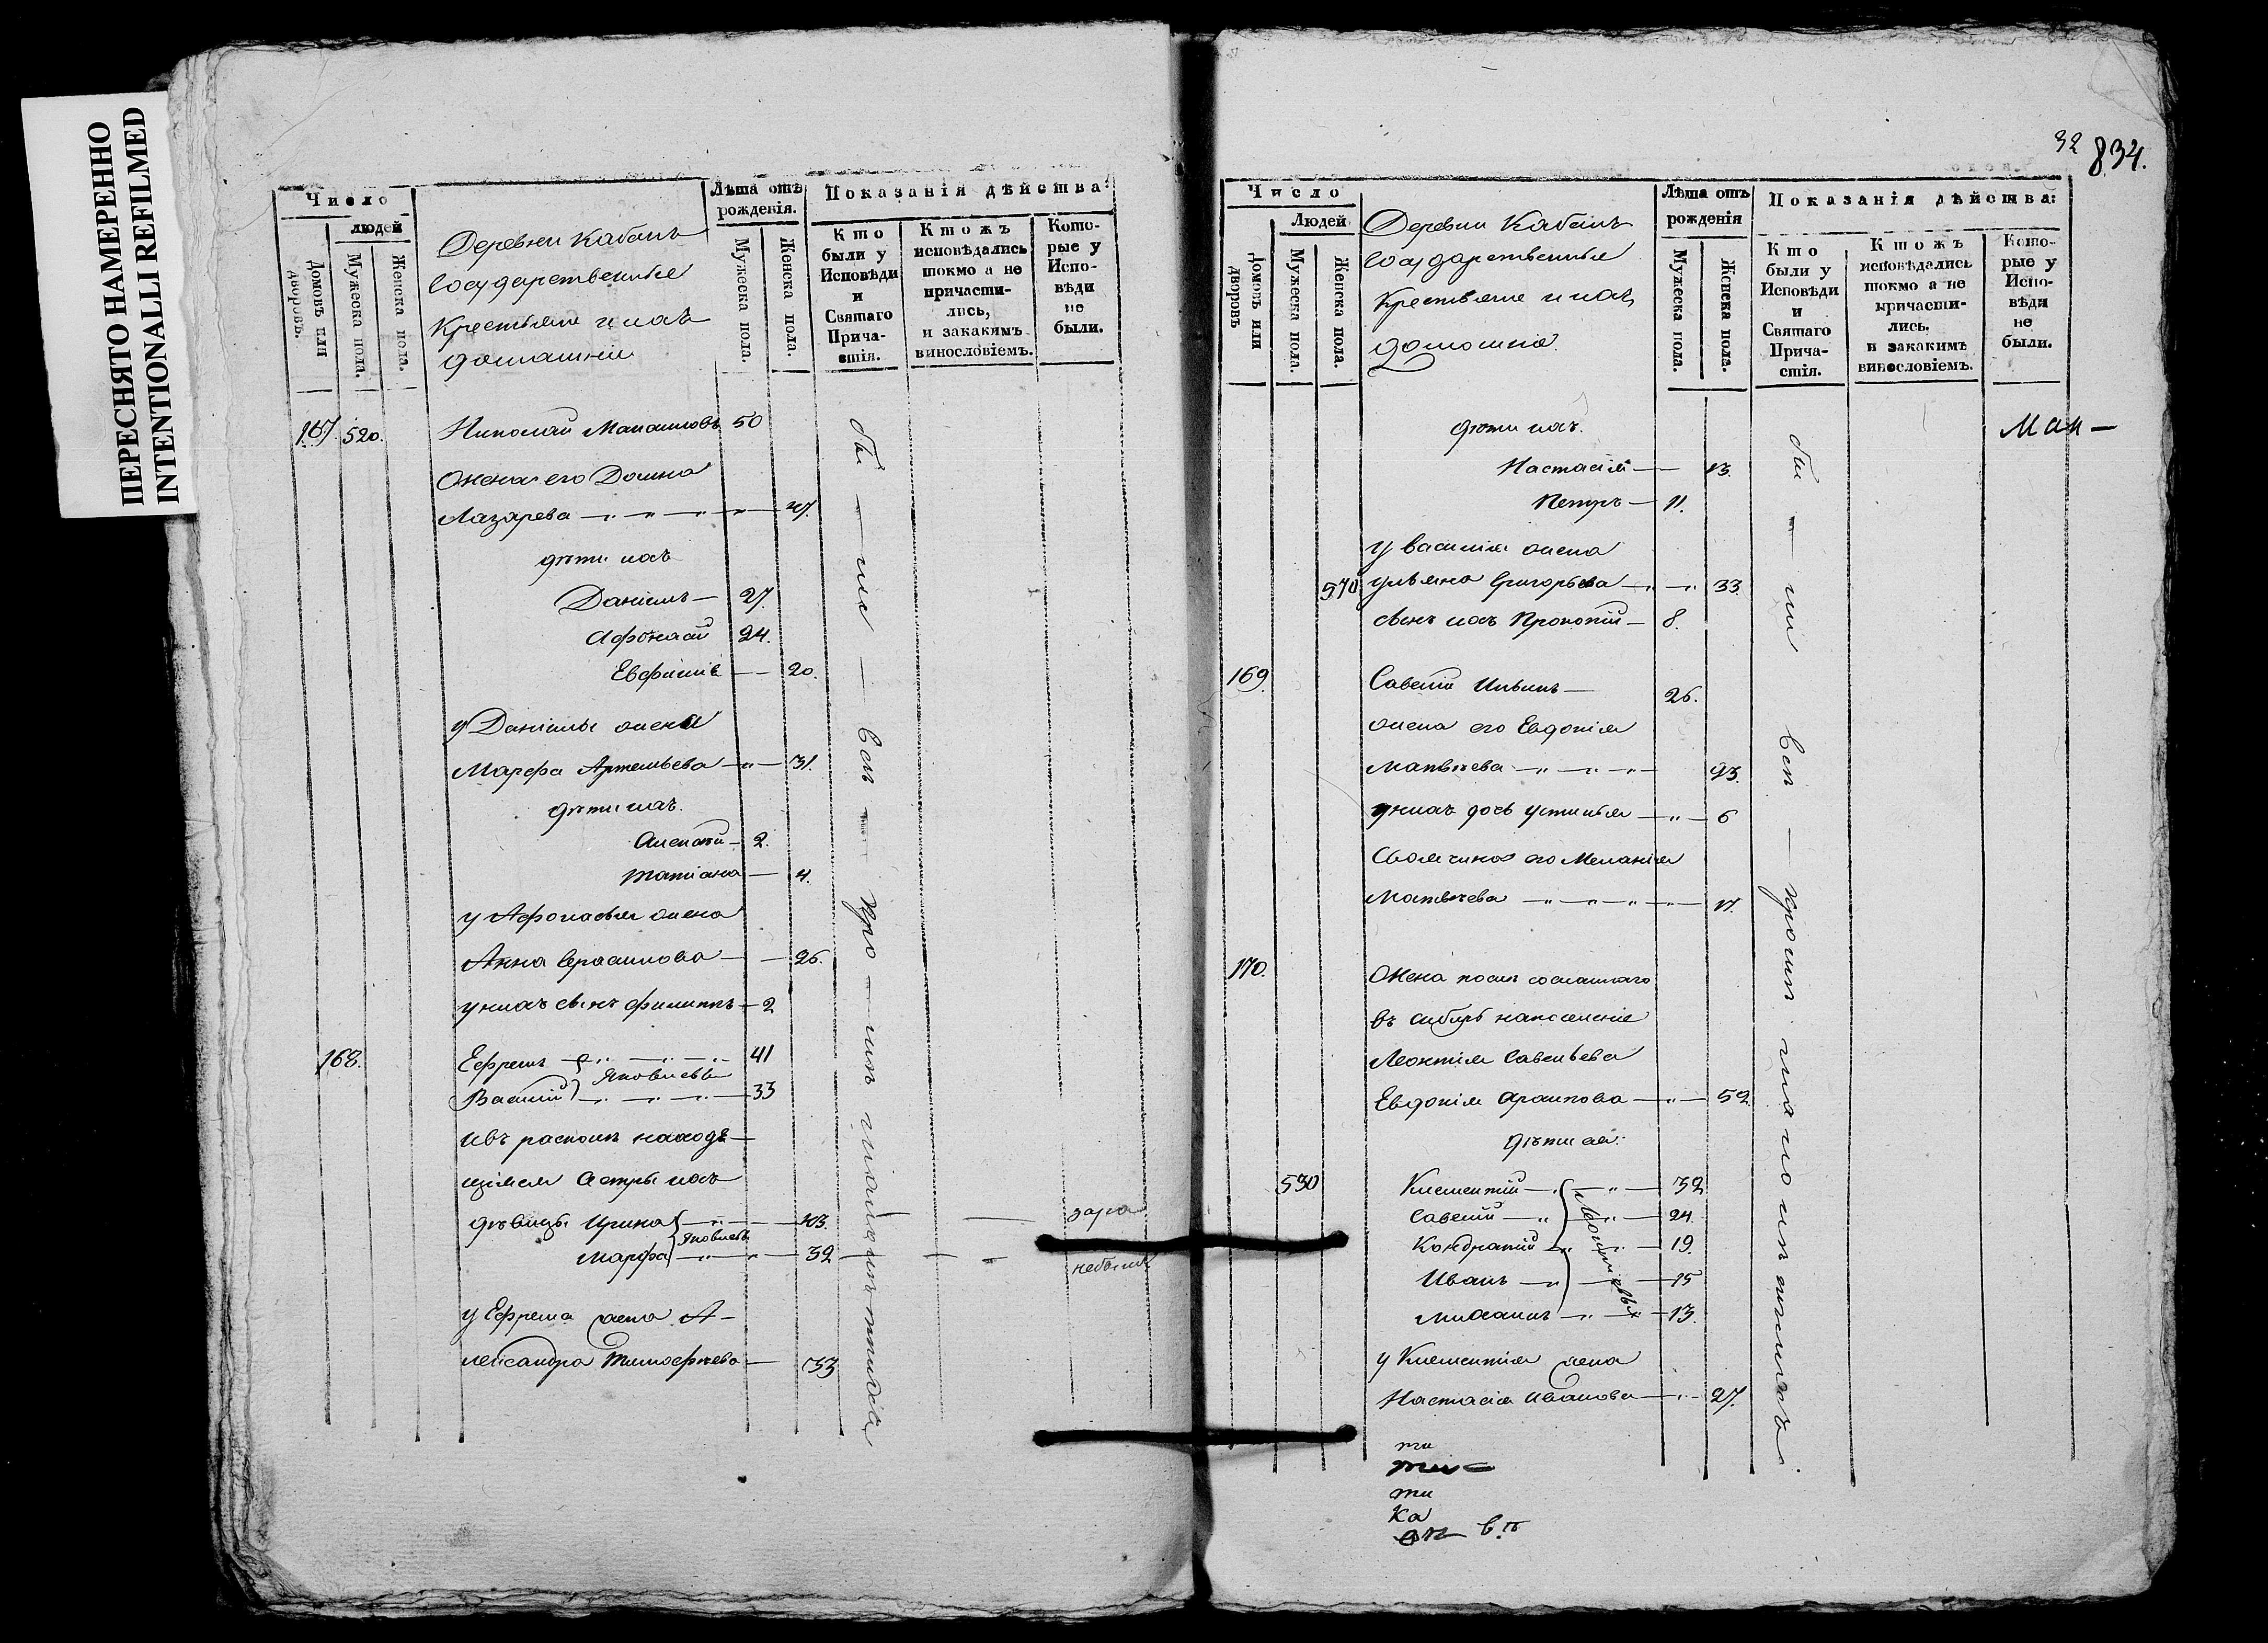 ПЕРЕСНЯТО НАМЕРЕННО
INTENTIONALLI REFILMED
Число
людей
Домовъ или дворовъ.
Мужеска пола.
Женска пола.
Деревни Кабанъ
Государственныя
Крестьяне и ихъ
домашніи
Лѣта отъ рожденія.
Мужеска пола.
Женска пола.
Показанія дѣйства:
Кто были у Исповѣди и Святаго Прича-стія.
Ктожъ исповѣдались токмо а не причасти-лись, и закакимъ винословіемъ.
Кото-рые у Испо-вѣди не были.
167. 520. Николай 50
Жена его Домна
Лазарева 47.
дѣти ихъ
Даніилъ — 27.
Афонасій 24.
Евфимія — 20.
у Даніила жена
Марфа Артемьева — 31.
дѣти ихъ.
Алексѣй — 2.
Татіана — 4.
у Афонасья жена
Анна Герасимова — 26.
у нихъ сынъ Филиппъ — 2
168. Ефремъ 41
Яковлевы
Василій 33
ихъ въ расколѣ находя-
щіяся сестры ихъ
дѣвицы Ирина 43.
Яковлевы
Марфа 32
не были
у Ефрема жена А-
лександра Тимофѣева — 33
32 834.
Число
Людей
Домовъ или дворовъ
Мужеска пола.
Женска пола.
Деревни Кабанъ
Государственныя
Крестьяне и ихъ
домашніе
Лѣта отъ рожденія
Мужеска пола.
Женска пола.
Показанія дѣйства:
Кто были у Исповѣди и Святаго Прича-стія.
Ктожъ исповѣдались токмо а не причасти-лись. и закакимъ винословіемъ.
Кото-рые у Испо-вѣди не были.
дѣти ихъ.
Настасія — 13.
Петръ — 11.
у Василія жена
570 Ульяна Григорьева — 33.
сынъ ихъ Прокопій — 8.
169. Савелій Ильинъ — 26.
жена его Евдокія
Матвѣева 23.
у нихъ дочь Устинья — 6
Своячина его Меланія
Матвѣева 17.
170. Жена послѣ сосланнаго
въ Сибирь на поселеніе
Леонтія Савельева
Евдокія Архипова — 52.
дѣти ея:
530 Климентій — 32
Савелій — 24.
Кондратій — 19.
Иванъ — 15
Михаилъ — 13.
Леонтьевы
у Климентія жена
Настасія Иванова — 27.
ти
ти
Ка